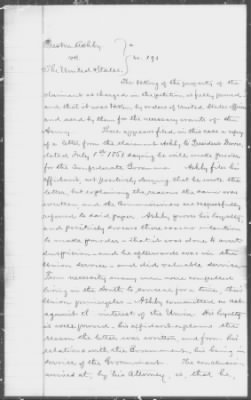 Ashby
vs.
The United States.
No. 191
The taking of the property of the
claimant as charged in the petition is fully proved
and that it was taken by orders of United States officers
and used by them for the necessary wants of the
Army. There appears filed in this case a copy
of a letter from the claimant Ashby to President Davis
dated July 1st 1861 saying he will make powder
for the Confederate Government. Ashby files his
affidavit, not positively denying that he wrote the
letter, but explaining the reasons the same was
written, and the Commissioners are respectfully
referred to said paper. Ashby proves his loyalty
and positively swears there was no intention
to make powder - that it was done to avert
suspicion - and he afterwards was in the
Union service, and did valuable service.
From necessity many men were compelled
living in the South to
Union principles - Ashby committed no act
against the interest of the Union. His loyalty
is well proved, his affidavit explains the
reason the letter was written and from his
relations with the Government, his being in
service of the Government. The conclusion
arrived at, by his Attorney, is, that he,